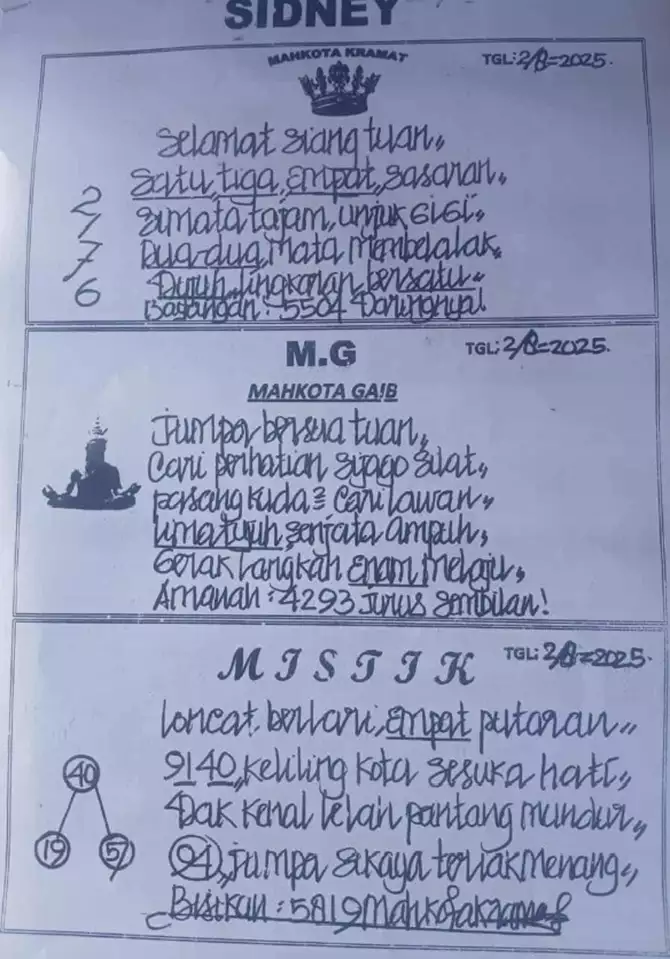 SIDNEY
MAHKOTA KRAMAT
TGL: 2/8=2025.
Selamat siang tuan,,
Satu, tiga, empat, sasaran,
2
simata tajam, unjuk gigi,
1
Dua-dua, mata membelalak,
7
Tujuh, lingkaran, bersatu,
6
Bayangan : 5504
M.G
TGL: 2/8=2025.
MAHKOTA GAIB
Jumpa bersua tuan,
Cari perhatian sijago silat,
pasang kuda2 cari lawan,
lima tujuh, senjata ampuh,
Gerak langkah enam melaju,
Amanah : 4293 Jurus sembilan!
MISTIK
TGL: 2/8=2025.
loncat, berlari, empat putaran,,
9140, keliling kota sesuka hati,
40
Tak kenal lelah pantang mundur,
19
57
04, jumpa sikaya teriak menang,
Bisikan : 5819 Mahkota kramat